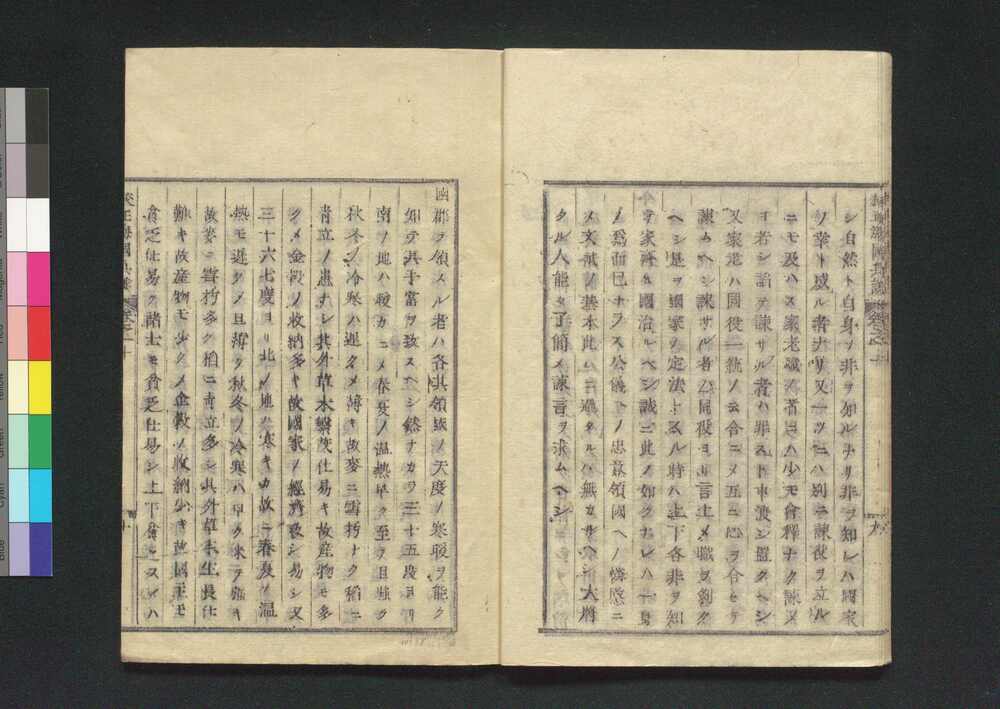 シ自然ト自身ノ非ヲ知ルナリ非ヲ知レハ國家
ノ幸ト成ル者ナリ又一ツニハ別ニ諫役ヲ立ル
ニモ及ハス家老職ノ者ニハ少モ會釋ナク諫メ
ヨ若シ諂テ諫サル者ハ罪スト申渡シ置クヘシ
又家老ハ同役一統ノ云合ニメ互ニ心ヲ合セテ
諫ムヘシ諫サル者ハ同役ヨリ言上メ職ヲ剝ク
ヘシ是ヲ國家ノ定法トスル時ハ上下各非ヲ知
テ家齊ヒ國治ルヘシ誠ニ此ノ如クナレハ一身
ノ爲而已ナラス公儀ヘノ忠義領國ヘノ憐愍ニ
メ文武ノ基本此ニ過タルハ無カルヘシ大將
タル人能々了簡メ諫言ヲ求ムヘシ
國郡ヲ領スル者ハ各其領城ノ天度ノ寒暖ヲ能ク
知テ其手當ヲ致スヘシ然ナカラ三十五度ヨリ
南ノ地ハ暖カニメ春夏ノ温熱早ク至ヲ且强ク
秋冬ノ冷寒ハ遲クメ薄キ故麥ニ雪朽ナク稻ニ
青立ノ患ナシ其外草木繁茂仕易キ故産物モ多
クメ金穀ノ收納多キ故國家ノ經濟致シ易シ又
三十六七度ヨリ北ノ地ハ寒キカ故ニ春夏ノ温
熱モ遲クメ且薄ク秋冬ノ冷寒ハ早ク來ヲ强キ
故麥ニ雪朽多ク稻ニ青立多シ其外草木生長仕
難キ故産物モ少クメ金穀ノ收納少キ故國主モ
貧乏仕易ク諸士モ貧乏仕易シ上下貧